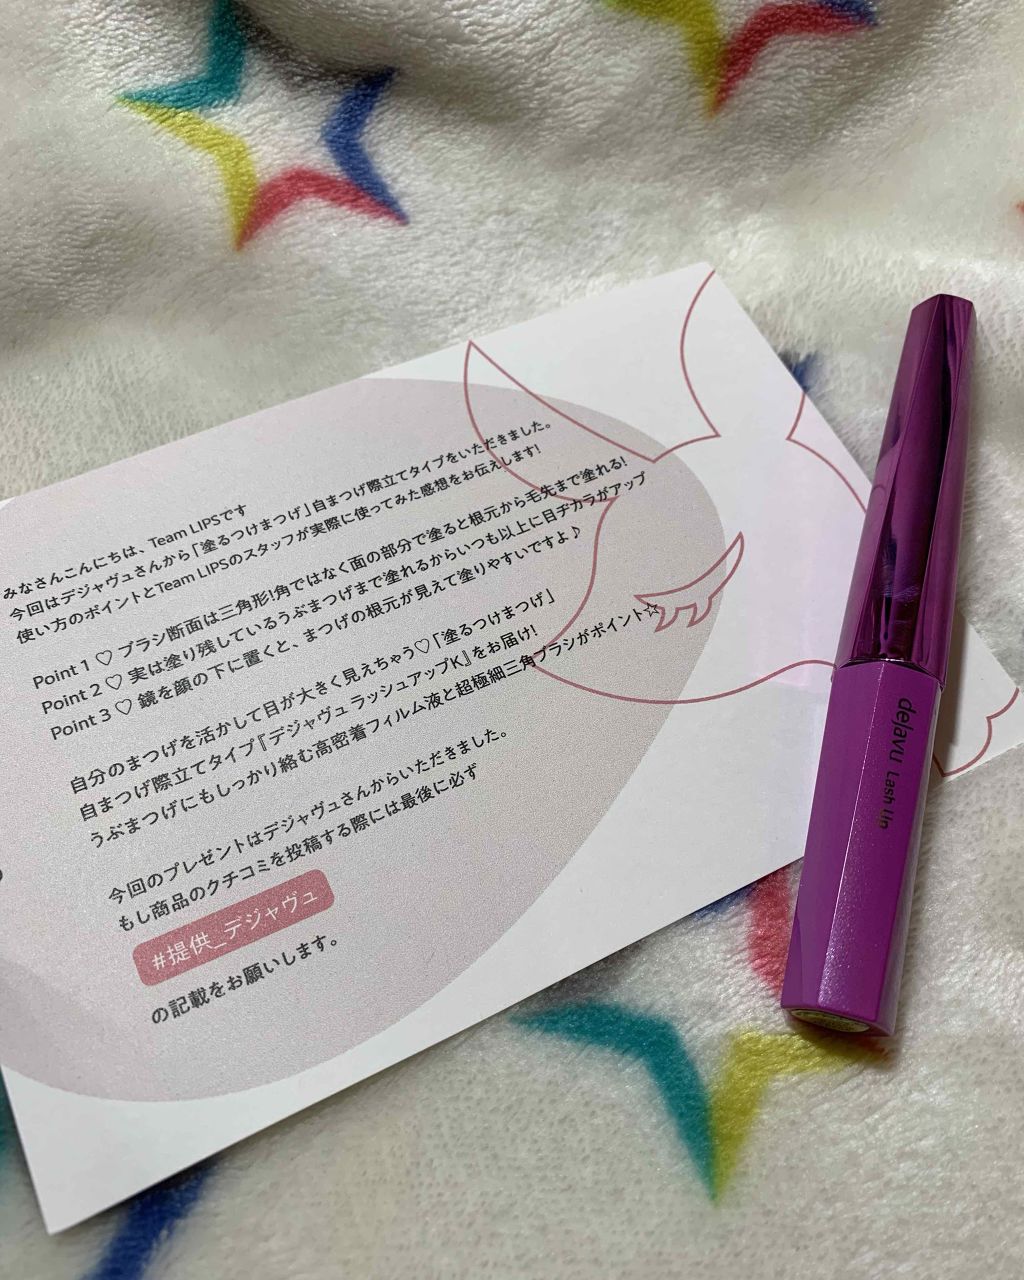 みなさんこんにちは、Team LIPSです
今回はデジャヴュさんから「塗るつけまつげ」自まつげ際立てタイプをいただきました。
使い方のポイントとTeam LIPSのスタッフが実際に使ってみた感想をお伝えします!
Point 1 ♡ ブラシ断面は三角形!角ではなく面の部分で塗ると根元から毛先まで塗れる!
Point 2 ♡ 実は塗り残しているうぶまつげまで塗れるからいつも以上に目ヂカラがアップ
Point 3 ♡ 鏡を顔の下に置くと、まつげの根元が見えて塗りやすいですよ♪
自分のまつげを活かして目が大きく見えちゃう♡「塗るつけまつげ」
自まつげ際立てタイプ『デジャヴュラッシュアップK』をお届け!
うぶまつげにもしっかり絡む高密着フィルム液と超極細三角ブラシがポイント☆
今回のプレゼントはデジャヴュさんからいただきました。
もし商品のクチコミを投稿する際には最後に必ず
#提供_デジャヴュ
の記載をお願いします。
dejavu Lash Up